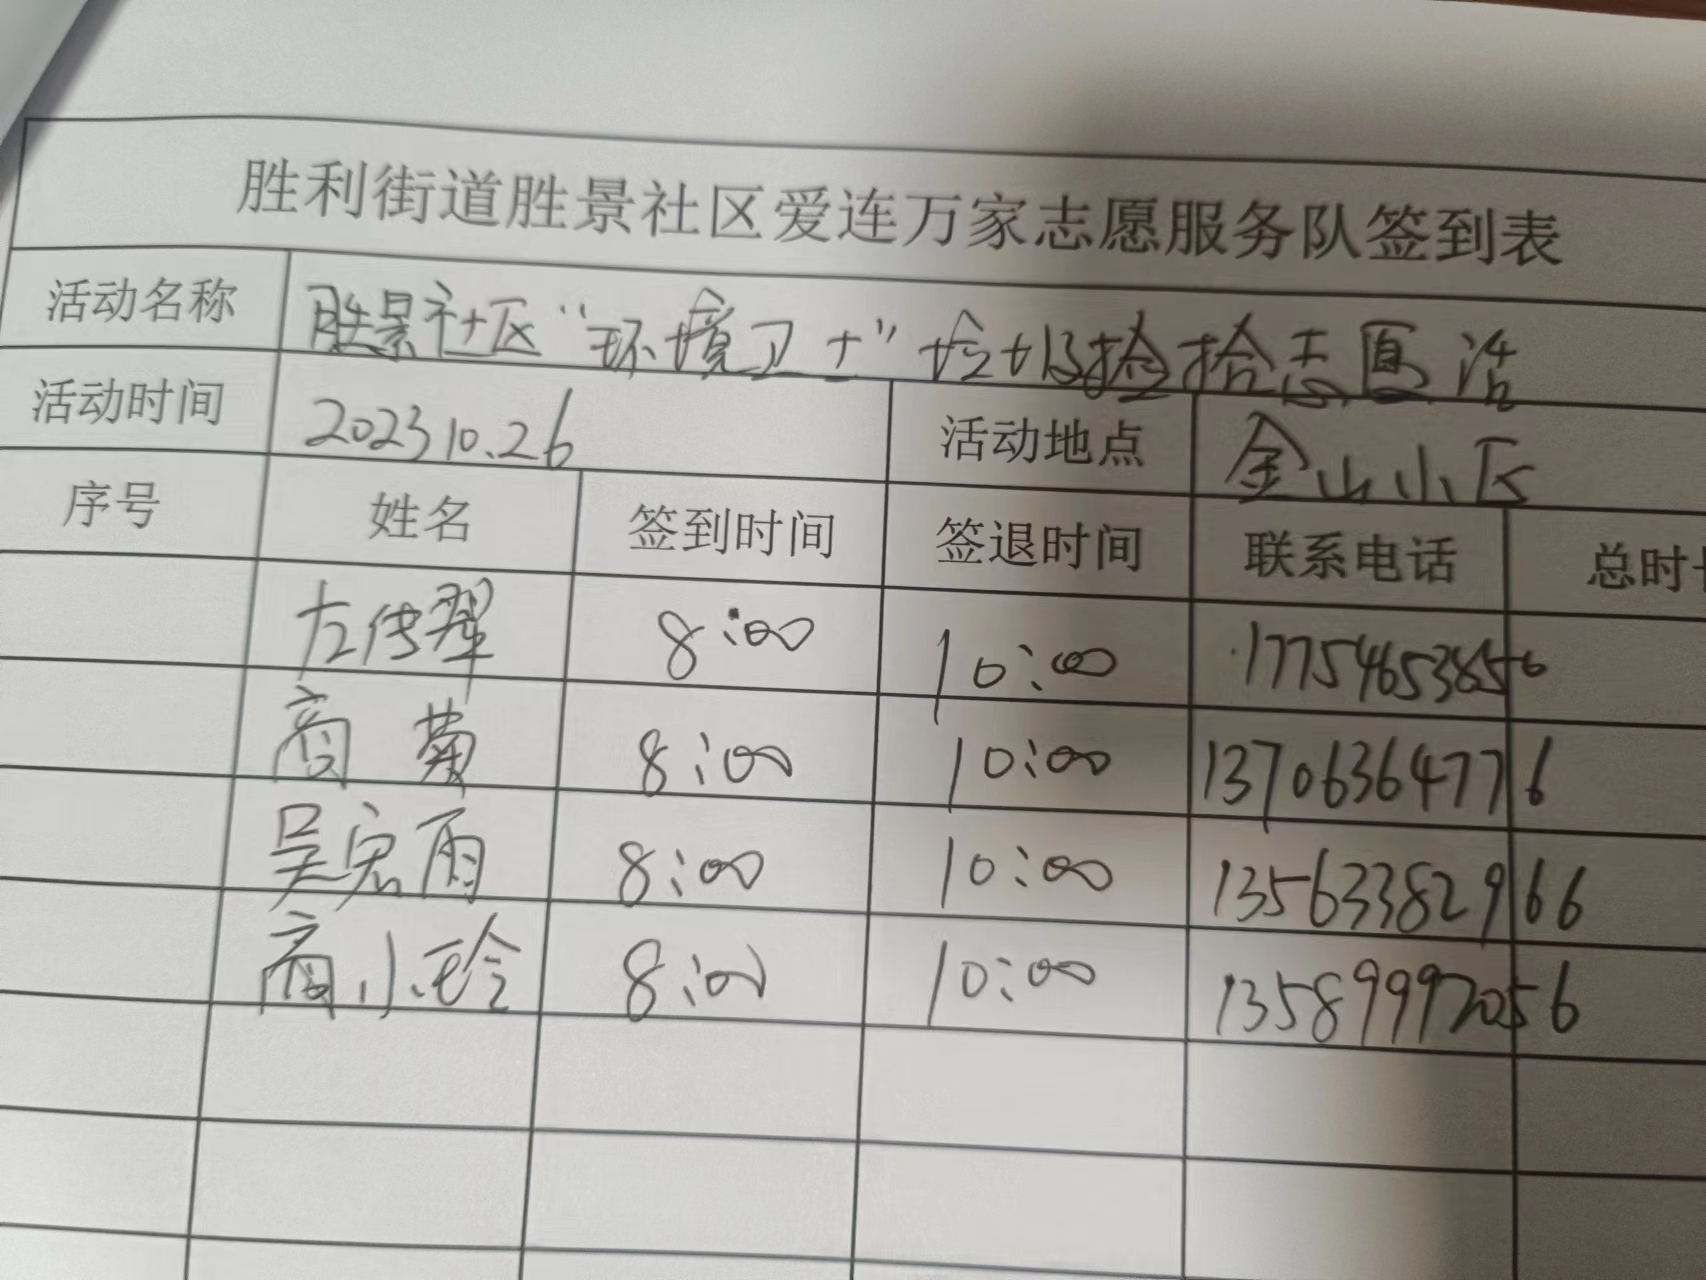 胜利街道胜景社区爱连万家志愿服务队签到表
活动名称 胜景社区“环境卫士”垃圾捡拾志愿活
活动时间 2023 10.26 活动地点 金山小区
序号 姓名 签到时间 签退时间 联系电话 总时
左传翠 8:00 10:00 17754653856
商菊 8:00 10:00 13706364776
吴宏雨 8:00 10:00 13563382966
商小玲 8:00 10:00 13589992056